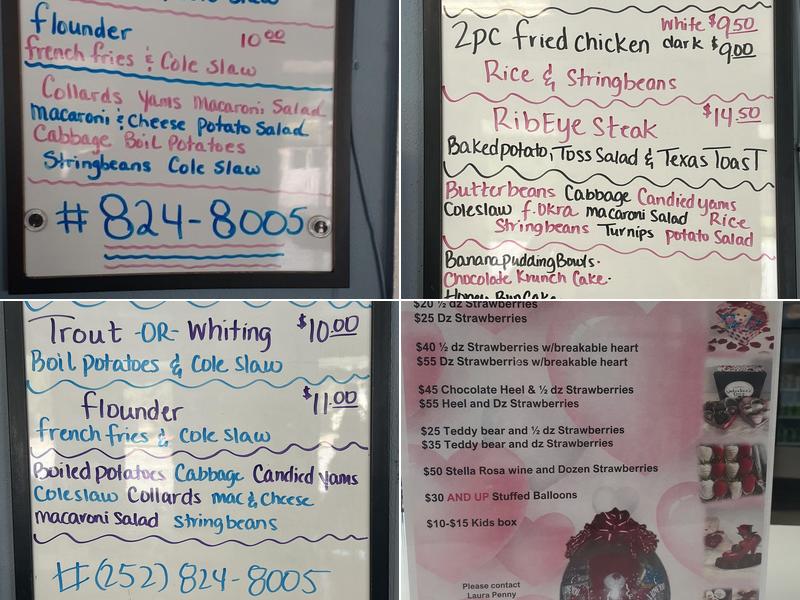 flounder 10.00
french fries & Cole Slaw
Collards Yams Macaroni Salad
macaroni & Cheese Potato Salad
Cabbage Boil Potatoes
Stringbeans Cole Slaw
# 824-8005
2pc fried chicken white $9.50
dark $9.00
Rice & Stringbeans
RibEye Steak $14.50
Baked potato, Toss Salad & Texas Toast
Butterbeans Cabbage Candied yams
Coleslaw f.okra macaroni Salad Rice
Stringbeans Turnips potato Salad
Banana pudding Bowls.
Chocolate Krunch Cake.
Honey BunCake
Trout -OR- Whiting $10.00
Boil potatoes & Cole Slaw
flounder $11.00
french fries & Cole slaw
Boiled potatoes Cabbage Candied yams
Coleslaw Collards mac & cheese
macaroni Salad stringbeans
#(252) 824-8005
$20 ½ dz Strawberries
$25 Dz Strawberries
$40 ½ dz Strawberries w/breakable heart
$55 Dz Strawberries w/breakable heart
$45 Chocolate Heel & ½ dz Strawberries
$55 Heel and Dz Strawberries
$25 Teddy bear and ½ dz Strawberries
$35 Teddy bear and dz Strawberries
$50 Stella Rosa wine and Dozen Strawberries
$30 AND UP Stuffed Balloons
$10-$15 Kids box
Please contact
Laura Penny